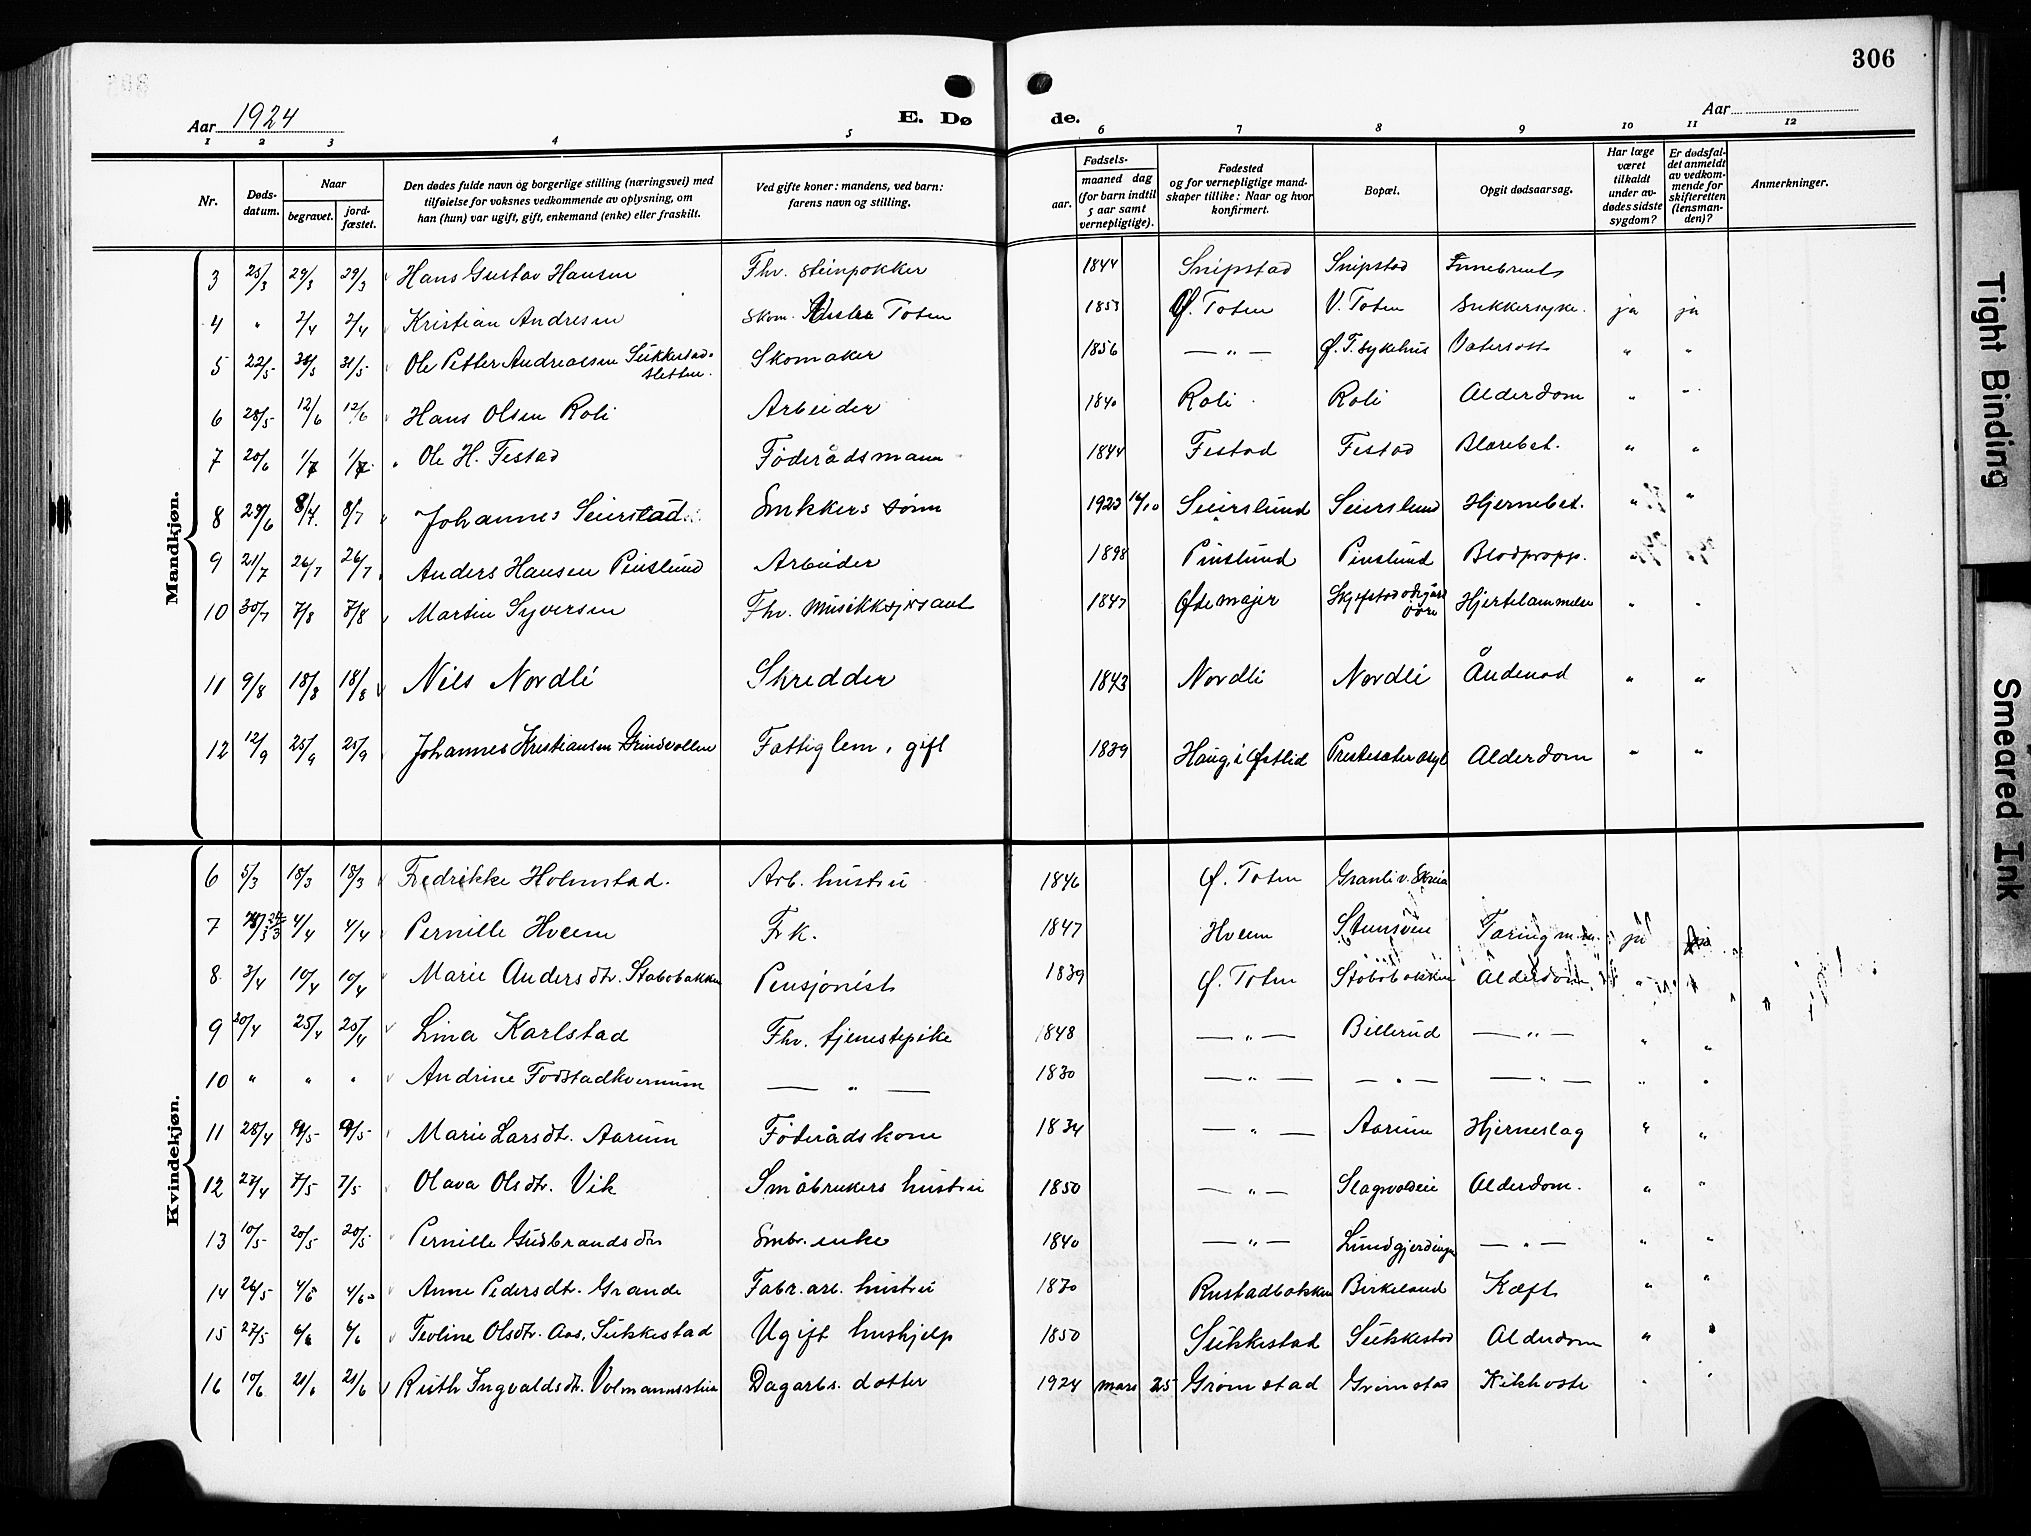 306
Aar 1924
E. Dø
de.
Aar
1 2 3 4 5 6 7 8 9 10 11 12
Nr.
Døds-datum.
Naar
begravet.
jord-fæstet.
Den dødes fulde navn og borgerlige stilling (næringsvei) med tilføielse for voksnes vedkommende av oplysning, om han (hun) var ugift, gift, enkemand (enke) eller fraskilt.
Ved gifte koner: mandens, ved barn: farens navn og stilling.
Fødsels-
aar.
maaned dag (for barn indtil 5 aar samt vernepligtige).
Fødested og for vernepligtige mandskaper tillike: Naar og hvor konfirmert.
Bopæl.
Opgit dødsaarsag.
Har læge været tilkaldt under avdødes sidste sygdom?
Er dødsfaldet anmeldt av vedkommende for skifteretten (lensmanden)?
Anmerkninger.
Mandkjøn.
3 25/3 29/3 29/3 Hans Gustav Hansen Fhv. steinpokker 1844 Snipstad Snipstad
4 " 2/4 2/4 Kristian Andresen Skom. Toten 1853 Ø. Toten V. Toten Sukkersyke. ja ja
5 22/5 31/5 31/5 Ole Petter Andreassen Sukkestad-sletten. Skomaker 1856 — " — Ø. T. sykehus Vatersott " "
6 28/5 12/6 12/6 Hans Olsen Roli Arbeider 1840 Roli Roli Alderdom " "
7 20/6 1/7 1/7 Ole H. Festad Føderådsmann 1844 Festad Festad Blærebet. " "
8 29/6 8/7 8/7 Johannes Seierstad Snikkers sønn 1922 16/10 Seierslund Seierslund Hjernebet. " "
9 21/7 26/7 26/7 Anders Hansen Pinslund Arbeider 1898 Pinslund Pinslund Blodpropp. " "
10 30/7 7/8 7/8 Martin Syversen Fhv. musikksjersant 1847 Skjefstad Hjertelammelse " "
11 9/8 18/8 18/8 Nils Nordli Skredder 1843 Nordli Nordli Åndenød " "
12 12/9 25/9 25/9 Johannes Kristiansen Grindvollen Fattiglem, gift 1839 Haug, i Østlid Prestesæter asyl Alderdom " "
Kvindekjøn.
6 5/3 18/3 18/3 Fredrikke Holmstad. Arb. hustru 1846 Ø. Toten Granli v. Skreia
7 24/3 4/4 4/4 Pernille Hveem Frk. 1847 Hveem Stensveen ja
8 3/4 10/4 10/4 Marie Andersdtr. Stabobakken Pensjonist 1839 Ø. Toten Støbobakken Alderdom " "
9 20/4 25/4 25/4 Lina Karlstad Fhv. tjenestepike 1848 — " — Billerud — " — " "
10 " " " Andrine Fodstadkvernum — " — 1830 — " — — " — — " — " "
11 28/4 9/5 9/5 Marie Larsdtr. Aarum Føderådskone 1834 — " — Aarum Hjerneslag " "
12 27/4 7/5 7/5 Olava Olsdtr. Vik Småbrukers hustru 1850 — " — Slagsvoldeie Alderdom. " "
13 10/5 20/5 20/5 Pernille Gudbrandsdtr Smbr. enke 1840 — " — Lundgjerdingen — " — " "
14 26/5 4/6 4/6 Anne Pedersdtr. Grande Fabr. arb. hustru 1870 Rustadbakken Birkelund Kræft " "
15 27/5 6/6 6/6 Teoline Olsdtr. Aas, Sukkestad Ugift hushjelp 1850 Sukkestad Sukkestad Alderdom " "
16 10/6 21/6 21/6 Ruth Ingvaldsdtr. Volmannsstua Dagarbs. datter 1924 mars 25 Grimstad Grimstad Kikhoste " "
Tight Binding
Smeared Ink